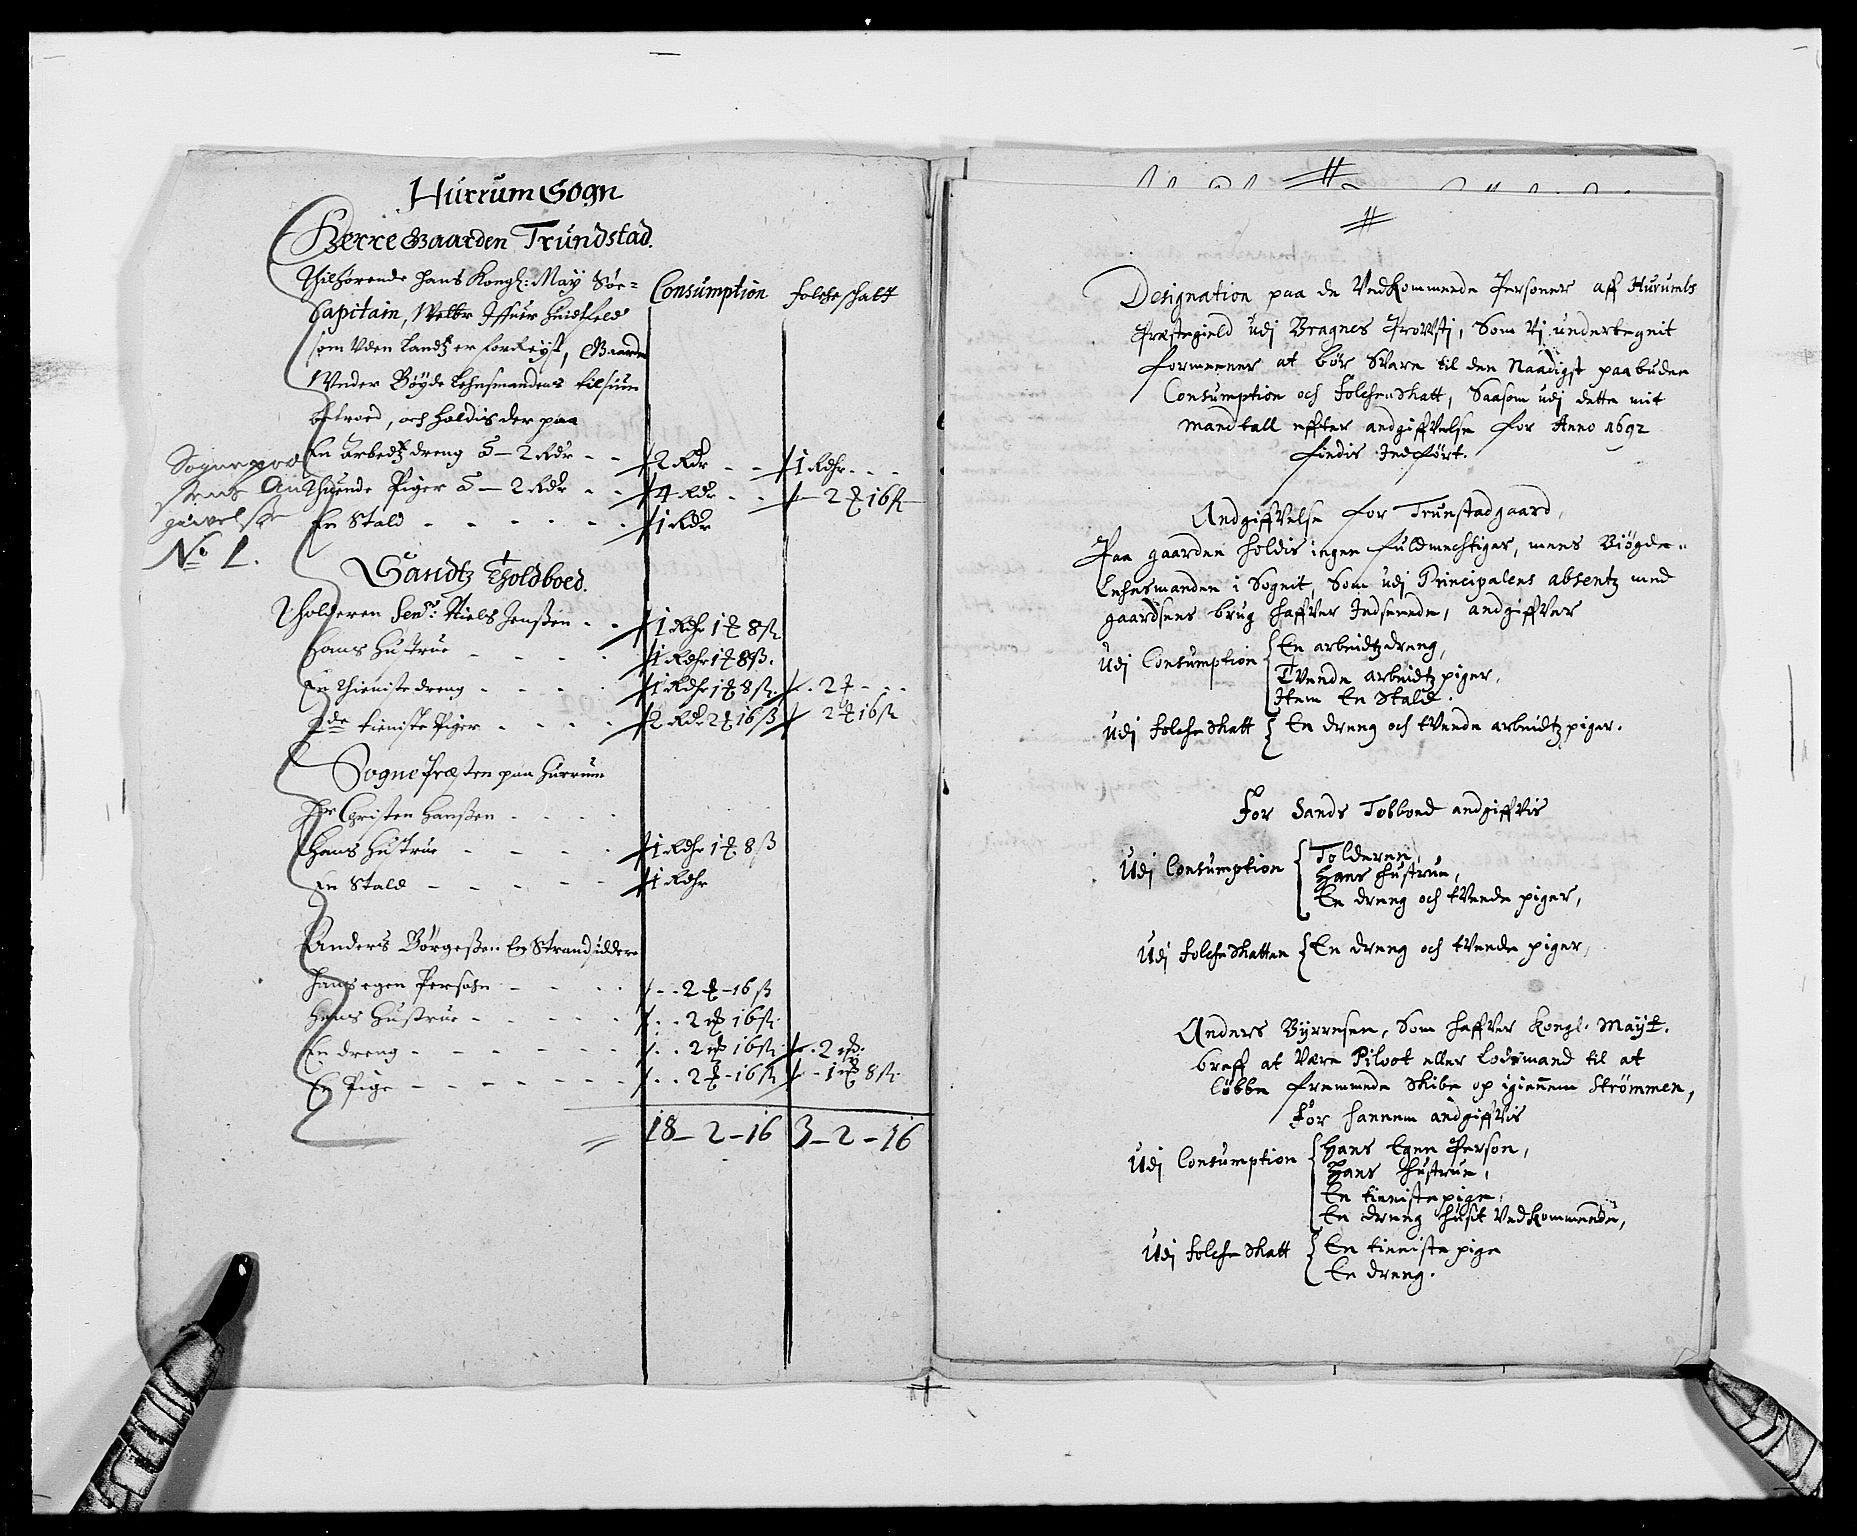 Hurrum Sogn
Herre Gaarden Trundstad.
Thilhørende Hans Kongl: May Søe-
Capitain, Welbr Iffuer Huidtfeld
som Uden Landtz er forReyst, Gaarde
Under Bøyde Lehnsmandens tilsiun
betroed, och holdis der paa
Consumption
folcheschatt
En arbedtz dreng à - 2 Rdr - - 2 Rdr - - 1 Rdhr - - -
Thuende Piger à - 2 Rdr - - 4 Rdr - - - 2 16 ß
En Stald - - - - - 1 Rdr
Sognepræ
stens An
giuelse
No 1.
Sandtz Tholdboed.
Tholderen Senr: Niels Jenßen - - 1 Rdhr 1 8 ß
Hans Hustrue - - - - 1 Rdhr 1 8 ß.
En thieniste dreng - - - - 1 Rdhr 1 8 ß - - 2 - - -
2de tieniste Piger - - - - 2 Rdr 2 16 ß 2 16 ß
Sogne Præsten paa Hurrum
Hr Christen Hanßen - - - -
Hans Hustrue - - - - 1 Rdhr 1 8 ß
En Stald - - - - - 1 Rdhr
Anders Børgeßen En Strandsidder
Hans egen Persohn - - - - - - 2 - 16 ß
Hans Hustrue - - - - - - - 2 16 ß
En dreng - - - - - - - - 2 16 ß - - 2
En Pige - - - - - - - - 2 - 16 ß - - 1 8 ß
18 - 2 - 16 3 - 2 - 16
Designation paa de Vedkommende Personer aff Hurumls
Præstegield udj Bragnes Prowstj, Som Vj underteignit
formeener at bør Svare til den Naadigst paabudne
Consumption och Folche Skatt, Saasom udj dette mit
mandtall effter andgiffvelse for Anno 1692
findis Indført.
Andgiffvelse for Trunstadgaard,
Paa gaarden holdis ingen fuldmechtiger, mens Biøgde-
Lehnsmanden i Sognit, Som udj Principalens absentz med
gaardsens brug haffver Indseende, andgiffver
Udj Consumption { En arbeidtzdreng,
Tvende arbeidtzpiger,
Item En Stald.
Udj Folche Skatt { En dreng och tvende arbeidtzpiger.
For Sands Tolboed andgiffvis
Udj Consumption { Tolderen,
Hans Hustrue,
En dreng och tvende piger,
Udj Folche Skatten { En dreng och tvende piger,
Anders Byrresen, Som haffver Kongl. Mayt.
breff at være Piloot eller Lodsmand til at
lobbe fremmede Skibe op igiennem Strømmen,
For hannem andgiffvis
Udj Consumption { Hans Egen Person,
Hans Hustrue,
En tienistepige,
En dreng huset Vedkommende,
Udj Folche Skatt { En tieniste pige
En dreng.